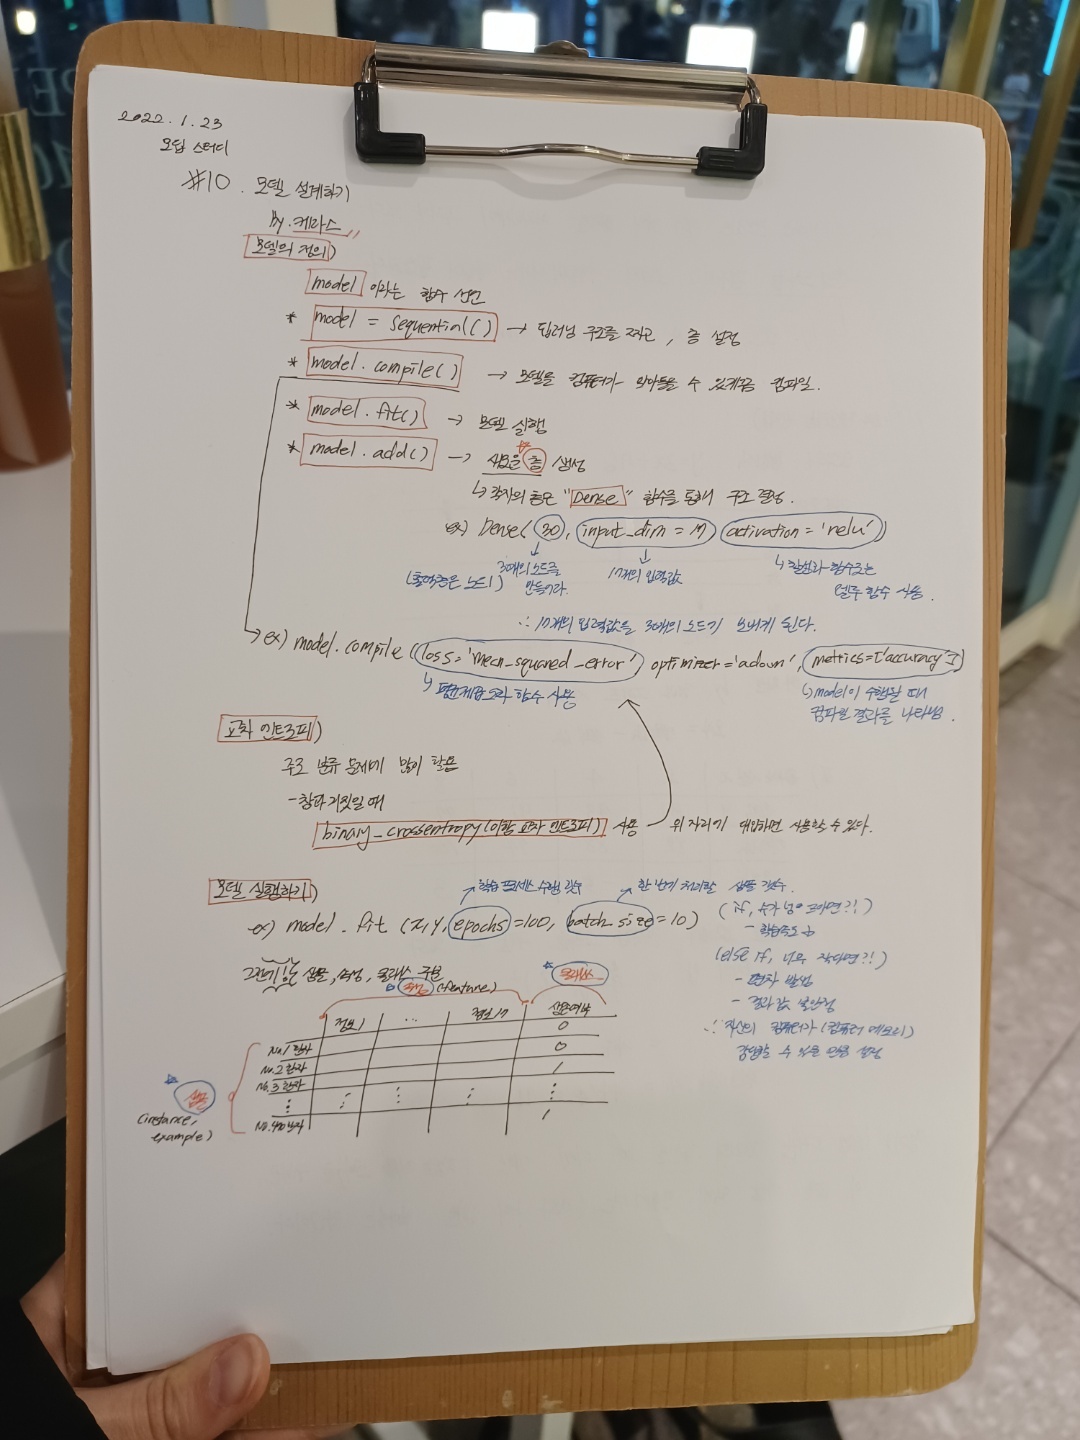 2022. 1. 23
모딥 스터디
#10. 모델 설계하기
By. 케라스
모델의 정의)
model 이라는 함수 선언
* model = Sequential() → 딥러닝 구조를 짜고, 층 설정
* model.compile() → 모델을 컴퓨터가 알아들을 수 있게끔 컴파일.
* model.fit() → 모델 실행
* model.add() → 새로운 층 생성
↳ 각자의 층은 "Dense" 함수를 통해 구조 결정.
ex) Dense(30, input_dim = 17, activation = 'relu')
30개의 노드를 만들어라.
(출력층은 노드1)
17개의 입력값
↳ 활성화 함수로는 렐루 함수 사용.
∴ 17개의 입력값을 30개의 노드로 보내게 된다.
ex) model.compile(loss='mean_squared_error' optimizer='adam', metrics=['accuracy'])
↳ 평균제곱오차 함수 사용
↳ model이 수행될 때 컴파일 결과를 나타냄.
교차 엔트로피)
주로 분류 문제에 많이 활용
- 참과 거짓일 때
binary_crossentropy(이항 교차 엔트로피) 사용 위 자리에 대입하면 사용할 수 있다.
모델 실행하기)
학습 프로세스 수행 횟수
한 번에 처리할 샘플 갯수.
ex) model.fit (X, Y, epochs=100, batch_size=10)
(if, 수가 넘 크다면?!)
- 학습속도↓
(else if, 너무 작다면?!)
- 편차 발생
- 결과값 불안정
∴ 자신의 컴퓨터가 (컴퓨터 메모리) 감당할 수 있을 만큼 설정
샘플, 속성, 클래스 구분
속성 (feature)
클래스
정보1 ... 정보17 생존여부
0
No.1 환자 0
No.2 환자 1
No.3 환자 ⋮ ⋮ ⋮ ⋮
⋮
No.470 환자 1
샘플
(instance, example)